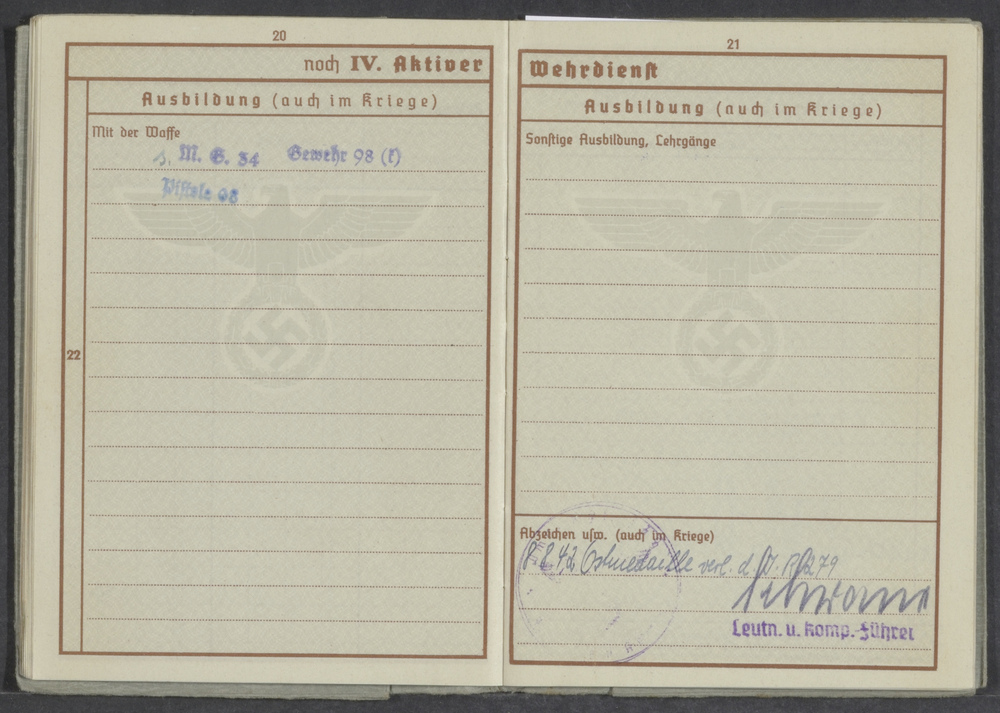 20
noch IV. Aktiver
Ausbildung (auch im Kriege)
Mit der Waffe
s. M. G. 34 Gewehr 98 (k)
Pistole 08
22
21
Wehrdienst
Ausbildung (auch im Kriege)
Sonstige Ausbildung, Lehrgänge
Abzeichen usw. (auch im Kriege)
8.42 Ostmedaille verl. d.
Leutn. u. Komp.-Führer